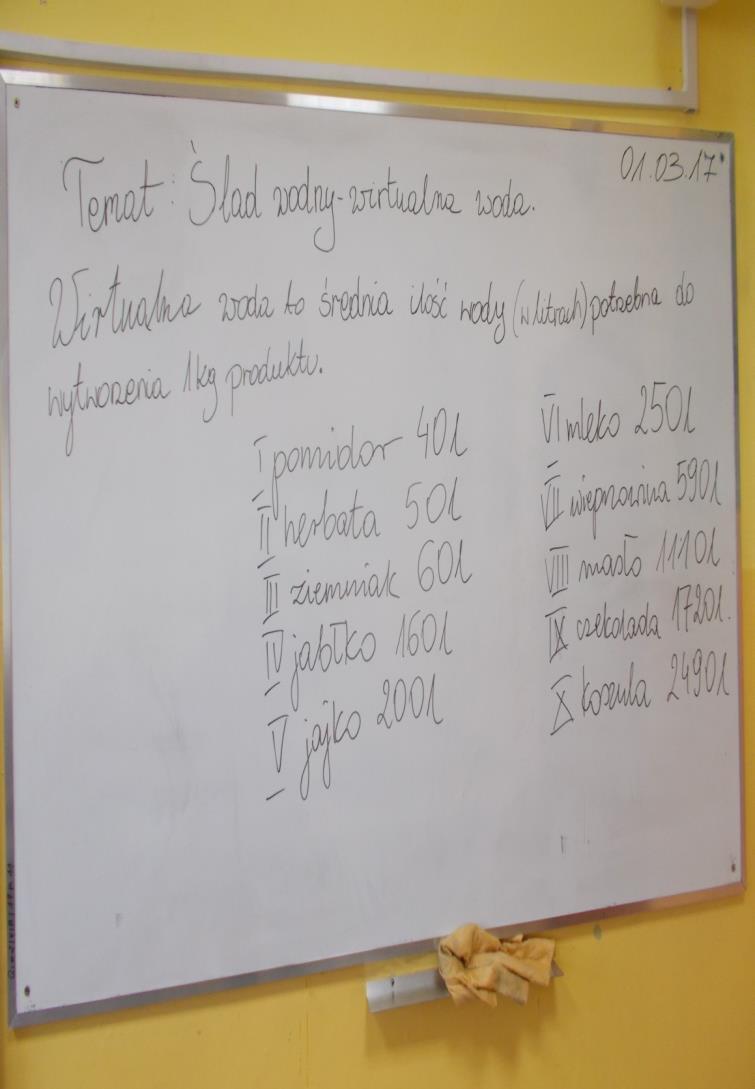 01.03.17
Temat: Ślad wodny-wirtualna woda.
Wirtualna woda to średnia ilość wody (w litrach) potrzebna do
wytworzenia 1kg produktu.
I pomidor 40l
II herbata 50l
III ziemniak 60l
IV jabłko 160l
V jajko 200l
VI mleko 250l
VII wieprzowina 590l
VIII masło 1110l
IX czekolada 1720l.
X koszula 2490l